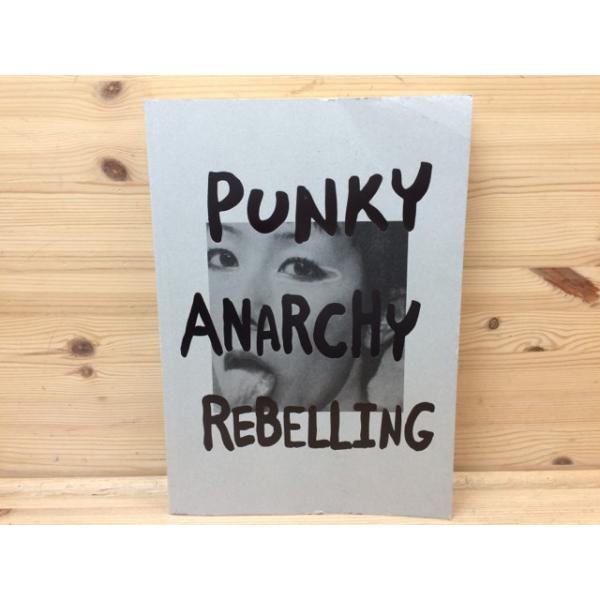 PUNKY
ANARCHY
REBELLING